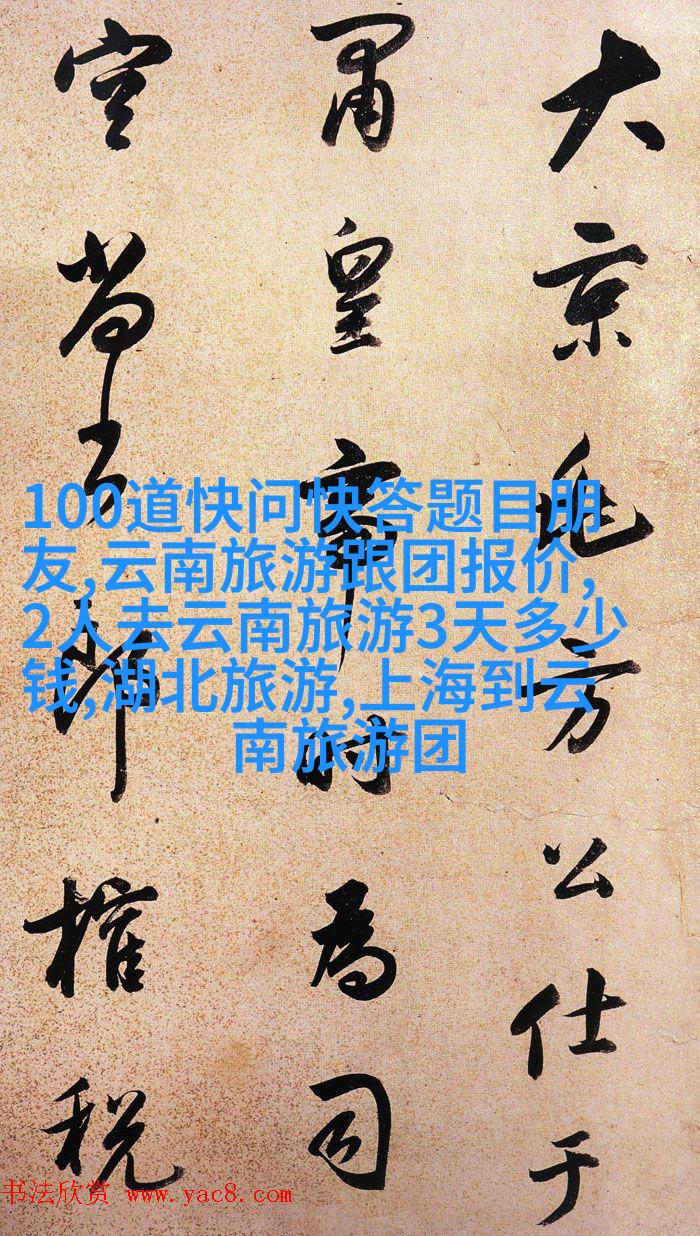 大京兆方公仕于
肅皇帝時為司
空尚書郎榷税
100道快问快答题目朋
友,云南旅游跟团报价,
2人去云南旅游3天多少
钱,湖北旅游,上海到云
南旅游团
书法欣赏 www.yac8.com